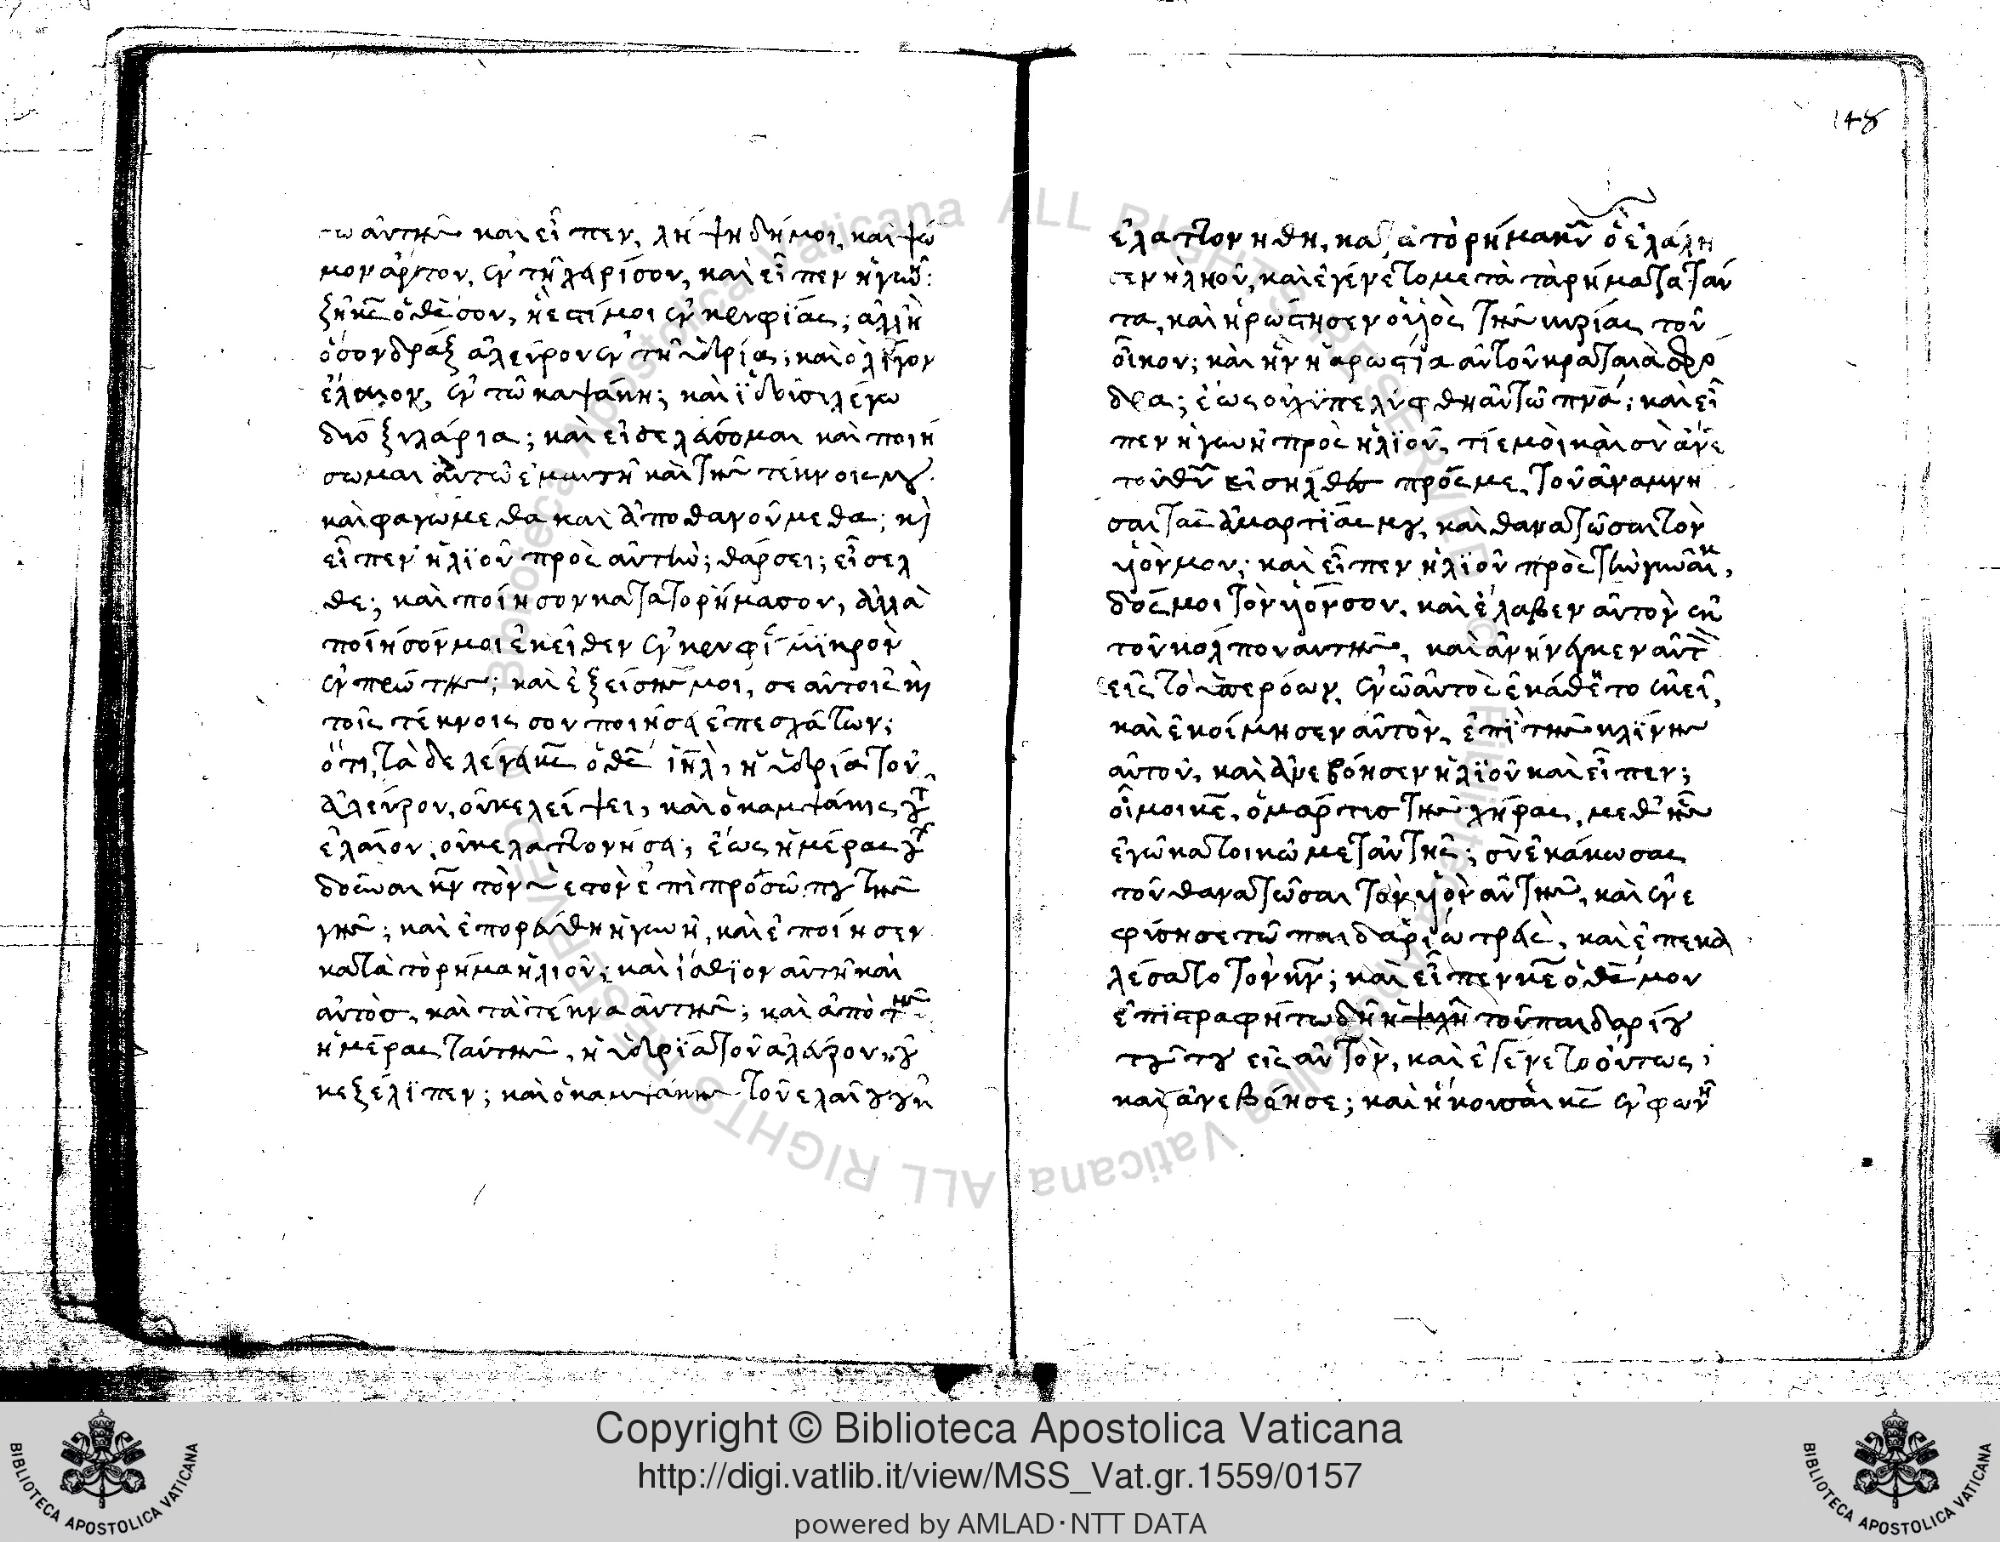 τω αὐτῆς καὶ εἶπεν, λήψη δή μοι, καὶ ψω
μον ἄρτον, ἐν τῆ χειρί σου, καὶ εἶπεν ἡ γυνὴ:
ζῆ κ̅ς ὁ θ̅ς σου, ἢ ἐστί μοι ἐν κρυφίας; ἀλλ' ἢ
ὅσον δρὰξ ἀλεύρου ἐν τῆ ὑδρία; καὶ ὀλίγον
ἔλαιον, ἐν τῶ καψάκη; καὶ ϊδοὺ συλλέγω
δύο ξυλάρια; καὶ εἰσελεύσομαι καὶ ποιή
σωμαι αὐτῶ ἐμαυτῆ καὶ τοῖς τέκνοις μου.
καὶ φαγώμεθα καὶ ἀποθανούμεθα; κὶ
εἶπεν ἠλϊοῦ πρὸς αὐτὴν; θάρσει; εἴσελ
θε; καὶ ποίησον κατὰ τὸ ρῆμα σου, ἀλλὰ
ποίησόν μοι ἐκεῖθεν ἐν κρυφί μϊκρὸν
ἐν πρώτοις; καὶ ἐξείσης μοι, σε αὐτοις κὶ
τοῖς τέκνοις σου ποιήσεις ἐπεσχάτων;
ὅτι, τὰ δε λέγει κ̅ς ὁ θ̅ς ἰη̅λ, ἡ ὑδρία τοῦ
ἀλεύρου, οὐκ ελείψει, καὶ ὁ καμψάκης τοῦ
ἐλαίου, οὐκ ελαττονήσει, ἕως ἡμέρας τοῦ
δοῦναι κ̅ν τὸν ὑετὸν ἐπὶ προσώπου τῆς
γῆς; καὶ ἐπορεύθη ἡ γυνὴ, καὶ ἐποίησεν
κατὰ τὸ ρῆμα ἠλιοῦ; καὶ ἰσθϊον αὐτῆ καὶ
αὐτὸσ, καὶ τὰ τέκνα αὐτῆς; καὶ ἀπὸ τῆς
ἡμέρας ταύτης, ἡ ὑδρϊα τοῦ ἀλεύρου οὐ
κεξέλϊπεν; καὶ ὁ καμψάκης τοῦ ελαίου οὐκ
ἐλαττονήθη, κατὰ τὸ ρῆμα κ̅υ ὃ ἐλάλη
σεν ἠλϊοῦ, καὶ ἐγένετο μετὰ τὰ ρήματα ταῦ
τα, καὶ ἠρώστησεν ὁ ὑϊὸς τῆς κυρίας τοῦ
οἴκου; καὶ ἦν ἡ ἀρωστία αὐτοῦ κραταιὰ σφό
δρα; ἕως οὐχ ὑπελίφθη αὐτῶ π̅ν̅α; καὶ εἶ
πεν ἡ γυνὴ πρὸς ἠλϊοῦ, τί ἐμοὶ καὶ σὺ ἄν̅ε
τοῦ θ̅υ εἰσήλθες πρός με, τοῦ ἀναμνῆ
σαι τὰς ἁμαρτϊας μου, καὶ θανατῶσαι τὸν
ὑϊόν μου; καὶ εἶπεν ἠλϊοῦ πρὸς τὴν γυναῖκα,
δός μοι τὸν ὑϊόν σου, καὶ ἔλαβεν αὐτὸν ἐκ
τοῦ κόλπου αὐτῆς, καὶ ἀνήνεγκεν αὐτὸν
εἰς τὸ ὑπερόων, ἐν ὧ αὐτὸς ἐκάθητο ἐκεῖ,
καὶ ἐκοίμησεν αὐτὸν, ἐπὶ τῆς κλίνης
αὐτοῦ, καὶ ἀνεβόησεν ἠλϊοῦ καὶ εἶπεν;
οἴμοι κ̅ε, ὁ μάρτυσ τῆς χήρας, μεθ' ἧς
ἐγὼ κατοικῶ μετ' αὐτῆς; σὺ ἐκάκωσας
τοῦ θανατῶσαι τὸν ὑϊὸν αὐτῆς, καὶ ἐνε
φύσησε τῶ παιδαρίω τρεῖς, καὶ ἐπεκα
λέσατο τὸν κ̅ν; καὶ εἶπεν κ̅ε ὁ θ̅ς μου
ἐπιστραφήτω δὴ ἡ ψυχὴ τοῦ παιδαρίου
τούτου εἰς αὐτὸν, καὶ ἐγένετο οὕτως;
καὶ ἀνεβόησε; καὶ ἤκουσαι κ̅ς ἐν φωνῆ
148
Copyright © Biblioteca Apostolica Vaticana
http://digi.vatlib.it/view/MSS_Vat.gr.1559/0157
powered by AMLAD·NTT DATA
BIBLIOTECA APOSTOLICA VATICANA
BIBLIOTECA APOSTOLICA VATICANA